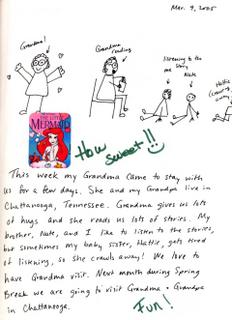 Mar. 9, 2005
Grandma!
Grandma reading
listening to the story
me
Nate
Hattie (crawling away)
THE LITTLE MERMAID
How sweet!!
This week my Grandma came to stay with
us for a few days. She and my Grandpa live in
Chattanooga, Tennessee. Grandma gives us lots
of hugs and she reads us lots of stories. My
brother, Nate, and I like to listen to the stories,
but sometimes my baby sister, Hattie, gets tired
of listening, so she crawls away! We love to
have Grandma visit. Next month during Spring
Break we are going to visit Grandma + Grandpa
in Chattanooga.
Fun!